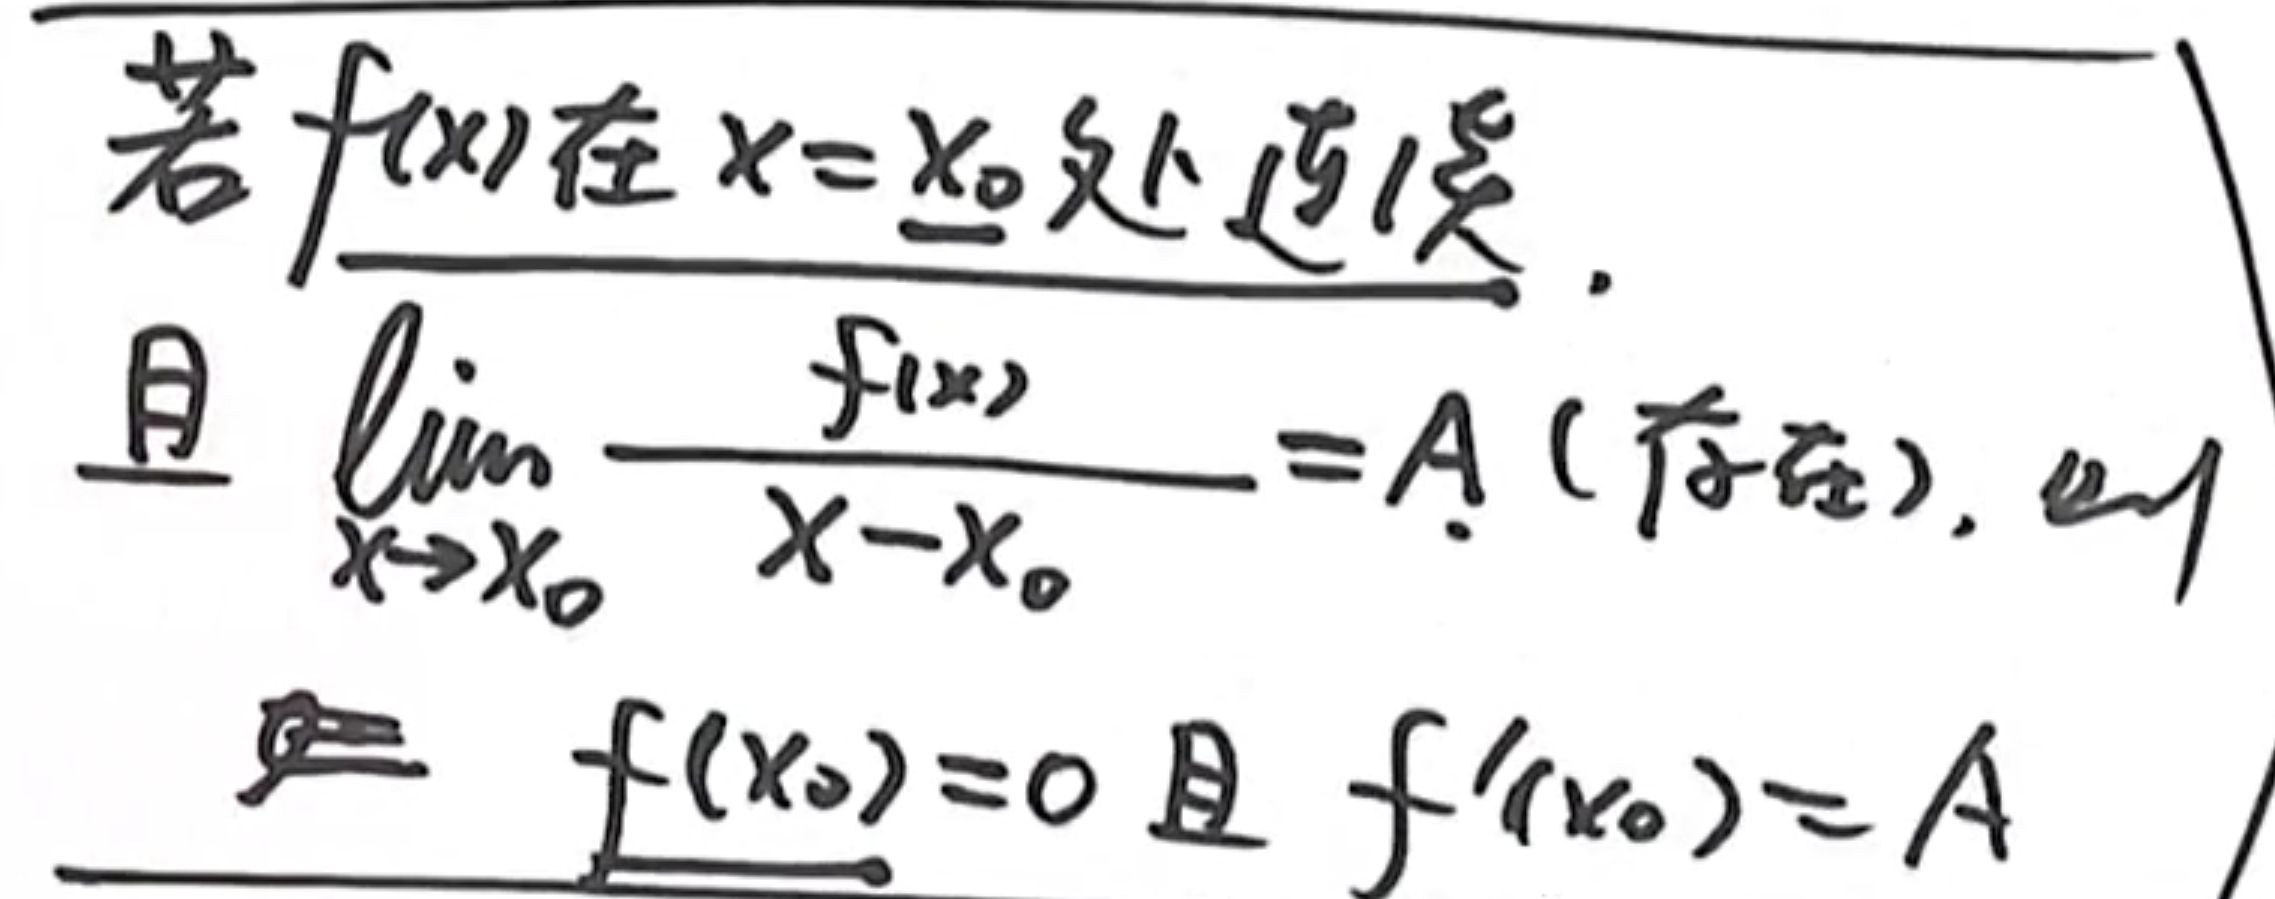 若f(x)在x=x₀处连续.
且 lim_{x→x₀} f(x)/(x-x₀) = A (存在). 则
f(x₀)=0 且 f'(x₀)=A